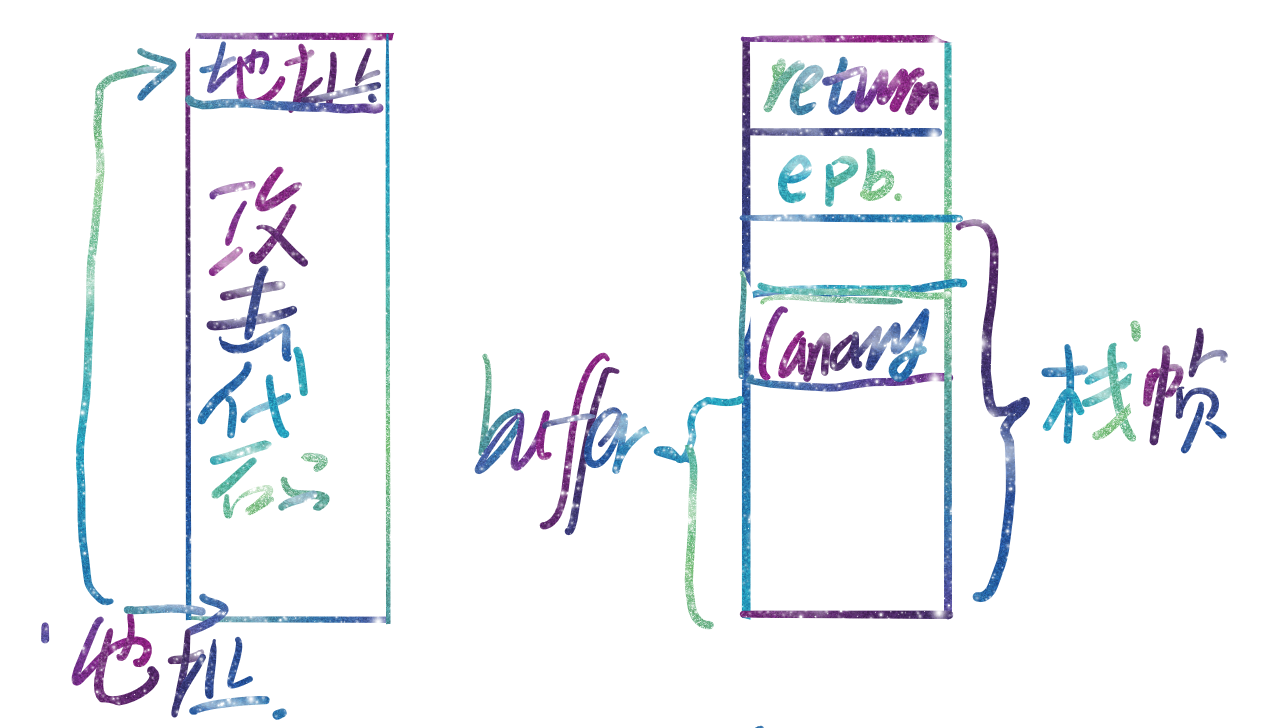 地址.
攻
击
代
码
地址.
return
epb.
Canary
buffer
栈帧